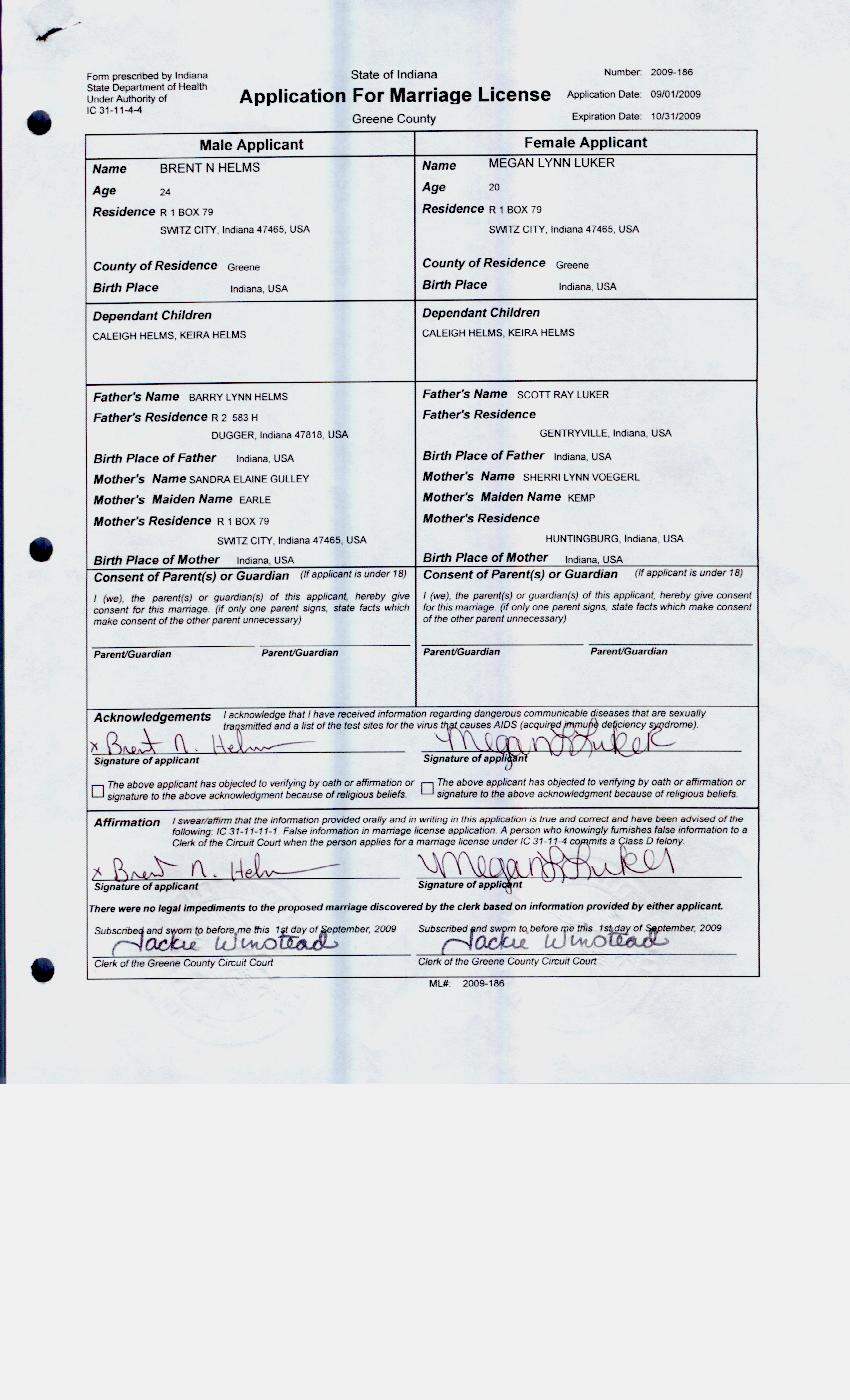 Form prescribed by Indiana
State Department of Health
Under Authority of
IC 31-11-4-4
State of Indiana
Application For Marriage License
Greene County
Number: 2009-186
Application Date: 09/01/2009
Expiration Date: 10/31/2009
Male Applicant
Name BRENT N HELMS
Age 24
Residence R 1 BOX 79
SWITZ CITY, Indiana 47465, USA
County of Residence Greene
Birth Place Indiana, USA
Dependant Children
CALEIGH HELMS, KEIRA HELMS
Father's Name BARRY LYNN HELMS
Father's Residence R 2 583 H
DUGGER, Indiana 47818, USA
Birth Place of Father Indiana, USA
Mother's Name SANDRA ELAINE GULLEY
Mother's Maiden Name EARLE
Mother's Residence R 1 BOX 79
SWITZ CITY, Indiana 47465, USA
Birth Place of Mother Indiana, USA
Consent of Parent(s) or Guardian (If applicant is under 18)
I (we), the parent(s) or guardian(s) of this applicant, hereby give
consent for this marriage. (if only one parent signs, state facts which
make consent of the other parent unnecessary)
Parent/Guardian Parent/Guardian
Female Applicant
Name MEGAN LYNN LUKER
Age 20
Residence R 1 BOX 79
SWITZ CITY, Indiana 47465, USA
County of Residence Greene
Birth Place Indiana, USA
Dependant Children
CALEIGH HELMS, KEIRA HELMS
Father's Name SCOTT RAY LUKER
Father's Residence
GENTRYVILLE, Indiana, USA
Birth Place of Father Indiana, USA
Mother's Name SHERRI LYNN VOEGERL
Mother's Maiden Name KEMP
Mother's Residence
HUNTINGBURG, Indiana, USA
Birth Place of Mother Indiana, USA
Consent of Parent(s) or Guardian (If applicant is under 18)
I (we), the parent(s) or guardian(s) of this applicant, hereby give consent
for this marriage. (if only one parent signs, state facts which make consent
of the other parent unnecessary)
Parent/Guardian Parent/Guardian
Acknowledgements I acknowledge that I have received information regarding dangerous communicable diseases that are sexually
transmitted and a list of the test sites for the virus that causes AIDS (acquired immune deficiency syndrome).
x Brent N. Helms Megan L Luker
Signature of applicant Signature of applicant
The above applicant has objected to verifying by oath or affirmation or
signature to the above acknowledgment because of religious beliefs.
The above applicant has objected to verifying by oath or affirmation or
signature to the above acknowledgment because of religious beliefs.
Affirmation I swear/affirm that the information provided orally and in writing in this application is true and correct and have been advised of the
following: IC 31-11-11-1. False information in marriage license application. A person who knowingly furnishes false information to a
Clerk of the Circuit Court when the person applies for a marriage license under IC 31-11-4 commits a Class D felony.
x Brent N. Helms Megan L Luker
Signature of applicant Signature of applicant
There were no legal impediments to the proposed marriage discovered by the clerk based on information provided by either applicant.
Subscribed and sworn to before me this 1st day of September, 2009
Jackie Winstead
Clerk of the Greene County Circuit Court
Subscribed and sworn to before me this 1st day of September, 2009
Jackie Winstead
Clerk of the Greene County Circuit Court
ML#: 2009-186